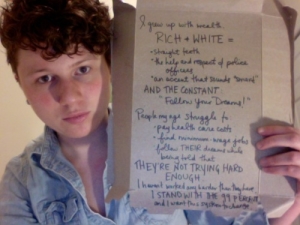 I grew up with wealth
RICH + WHITE =
- straight teeth
- the help and respect of police
officers
- an accent that sounds "smart"
AND THE CONSTANT
"Follow Your Dreams!"
People my age struggle to
- pay health care costs
- find minimum-wage jobs
follow THEIR dreams while
being told that
THEY'RE NOT TRYING HARD
ENOUGH
I haven't worked any harder than they have.
I STAND WITH THE 99 PERCENT
and I want this system to change